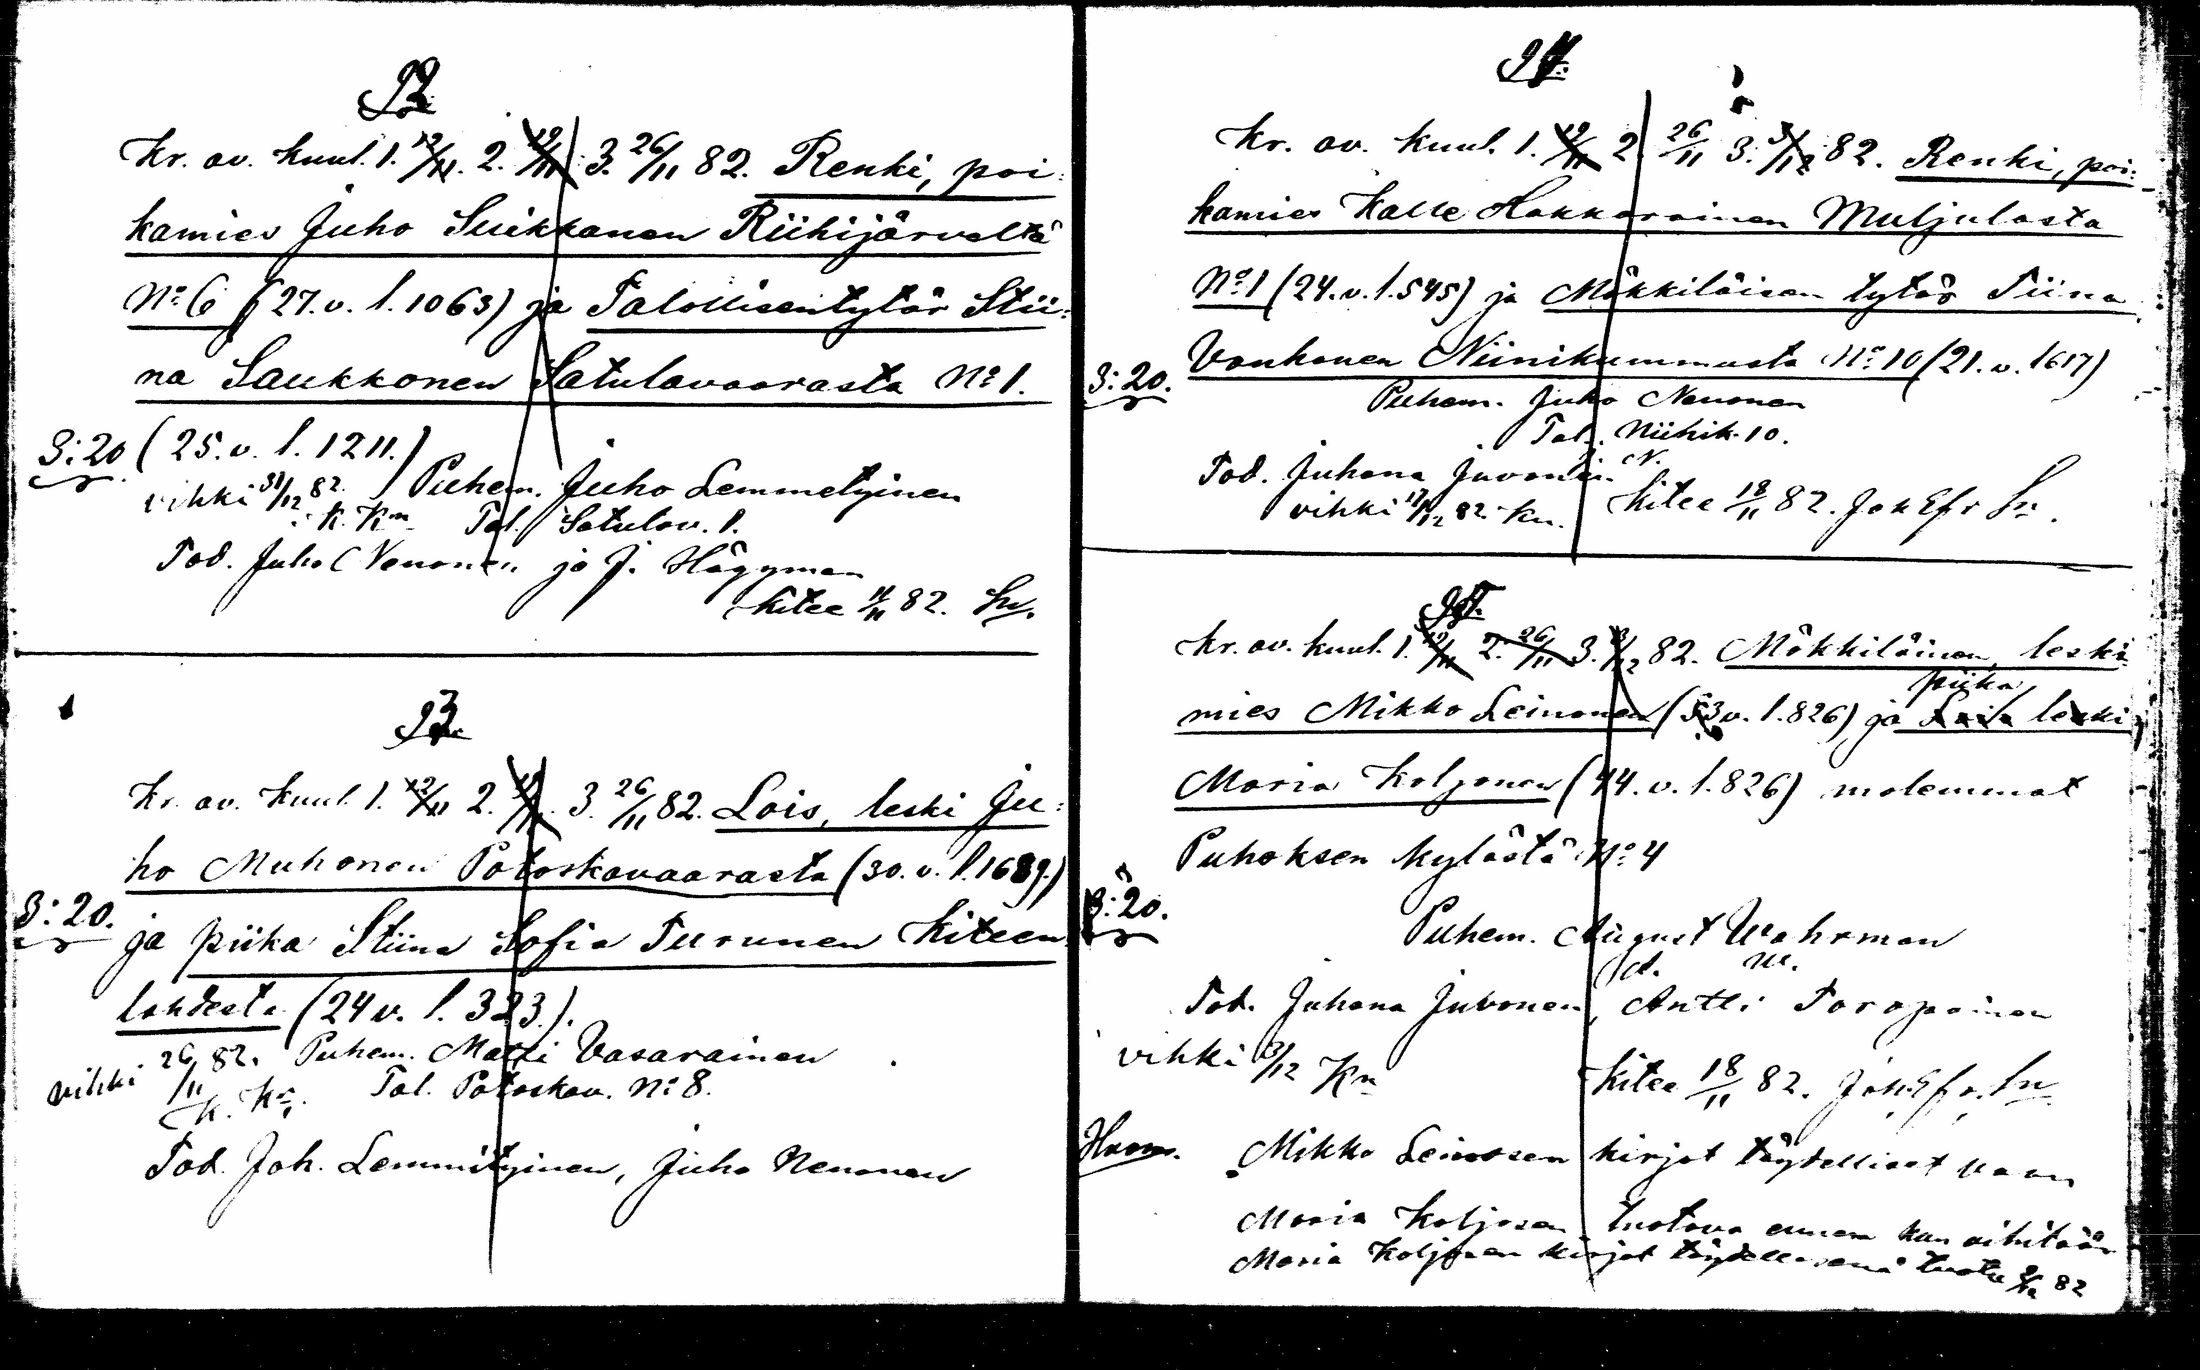 92.
Kr. av. kuul. 1. 12/11. 2. 19/11. 3. 26/11 82. Renki, poi-
kamies Juho Suikkanen Riihijärveltä
No 6 (27. v. l. 1063) ja Talollisentytär Stii-
na Saukkonen Satulavaarasta No 1.
3:20 (25. v. l. 1211.)
Puhem. Juho Lemmetyinen
vihki 31/12 82.
K. Kn Tal. Satulav. 1.
Tod. Juho Nenonen ja J. Hägyman
Kitee 11/11 82. Sn.
93.
Kr. av. kuul. 1. 12/11 2. 19/11. 3. 26/11 82. Lois, leski Ju-
ho Muhonen Potoskavaarasta (30. v. l. 1689.)
3:20. ja piika Stiina Sofia Turunen Kiteen
lahdesta (24 v. l. 323.).
vihki 26/11 82. Puhem. Matti Vasarainen
K. Kn. Tal. Potoskav. No 8.
Tod. Joh. Lemmityinen, Juho Nenonen
94.
Kr. av. kuul. 1. 19/11 2. 26/11 3. 3/12 82. Renki, poi-
kamies Kalle Hakkarainen Muljulasta
No 1 (24. v. l. 545) ja Mökkiläisen tytär Tiina
3:20. Vanhanen Niinikummusta No 10 (21. v. 1617)
Puhem. Juho Nenonen
Tal. Niinik. 10.
Tod. Juhana Juvonen
vihki 17/12 82. Kn. Kitee 18/11 82. Joh Efr Sn.
95.
Kr. av. kuul. 1. 19/11 2. 26/11 3. 3/12 82. Mökkiläinen, leski
piika
mies Mikko Leinonen (53 v. l. 826) ja Lois leski,
Maria Koljonen (44. v. l. 826) molemmat
Puhoksen kylästä No 4
3:20.
Puhem. August Wahrman
A. W.
Tod. Juhana Juvonen, Antti Toropainen
vihki 3/12 Kn Kitee 18/11 82. Joh. Efr. Sn
Huom. Mikko Leinosen kirjat täydelliset vaan
Maria Koljosen tuotava ennen kun vihitään
Maria Koljosen kirjat täydellisenä tuotu 2/12 82